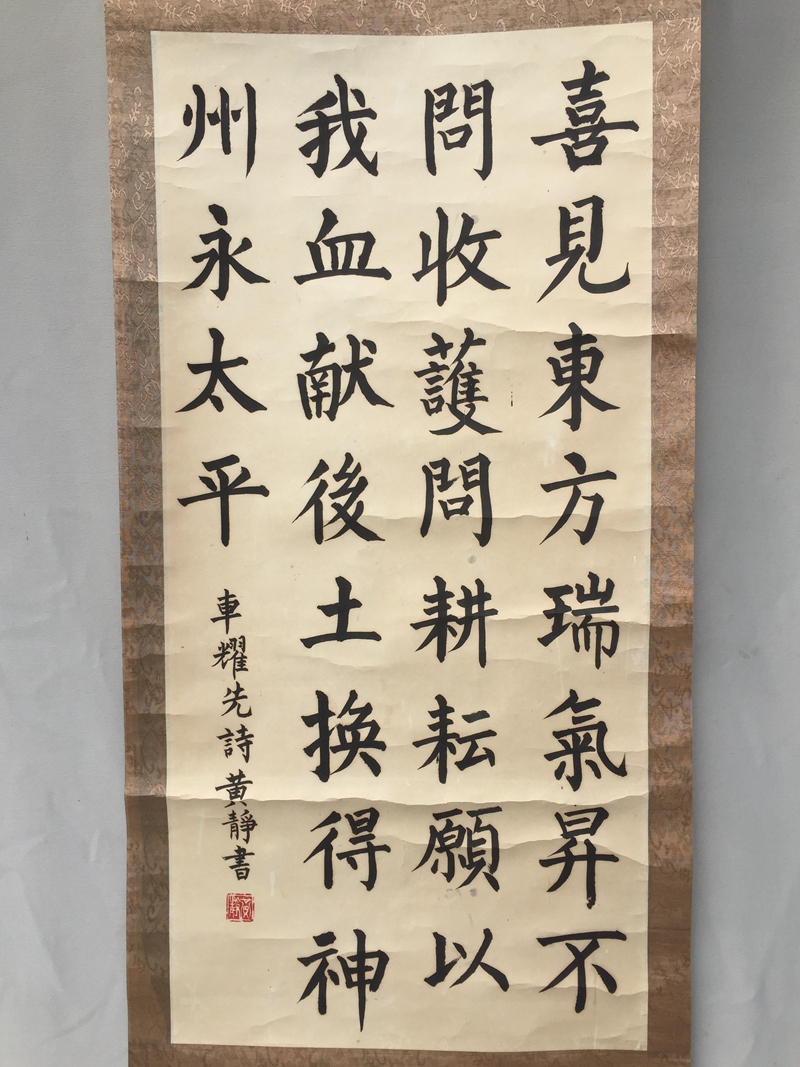 喜見東方瑞氣昇不
問收護問耕耘願以
我血献後土換得神
州永太平
車耀先詩黄靜書